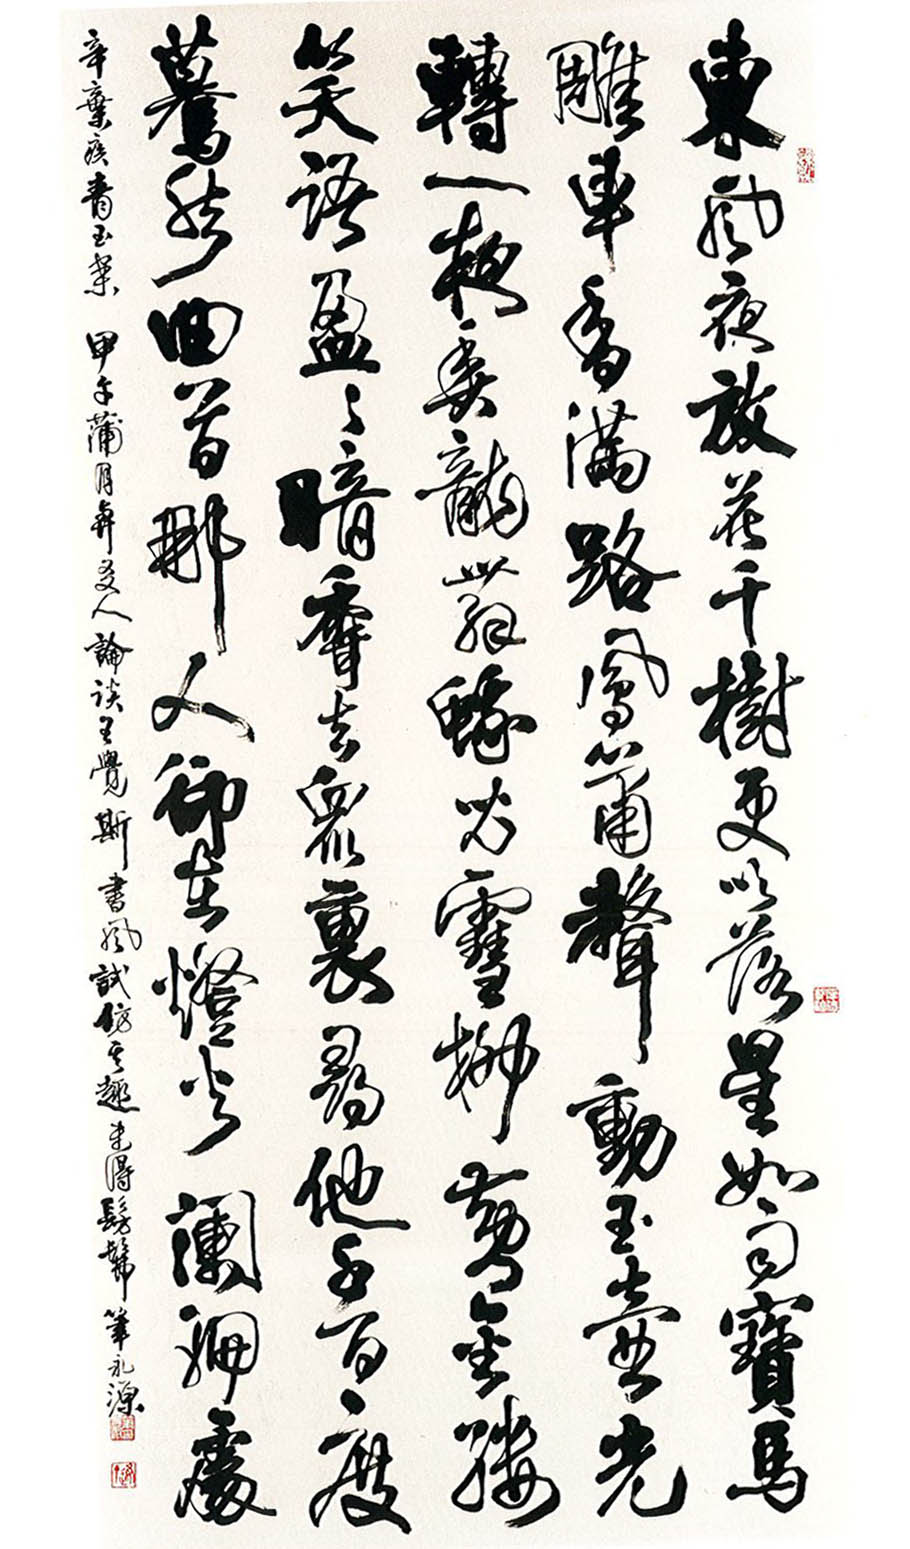 東風夜放花千樹更吹落星如雨寶馬
雕車香滿路鳳簫聲動玉壺光
轉一夜魚龍舞蛾兒雪柳黃金縷
笑語盈々暗香去眾裏尋他千百度
驀然回首那人卻在燈火闌珊處
辛棄疾青玉案 甲午蒲月與友人論談王覺斯書風試仿其趣未得髣髴